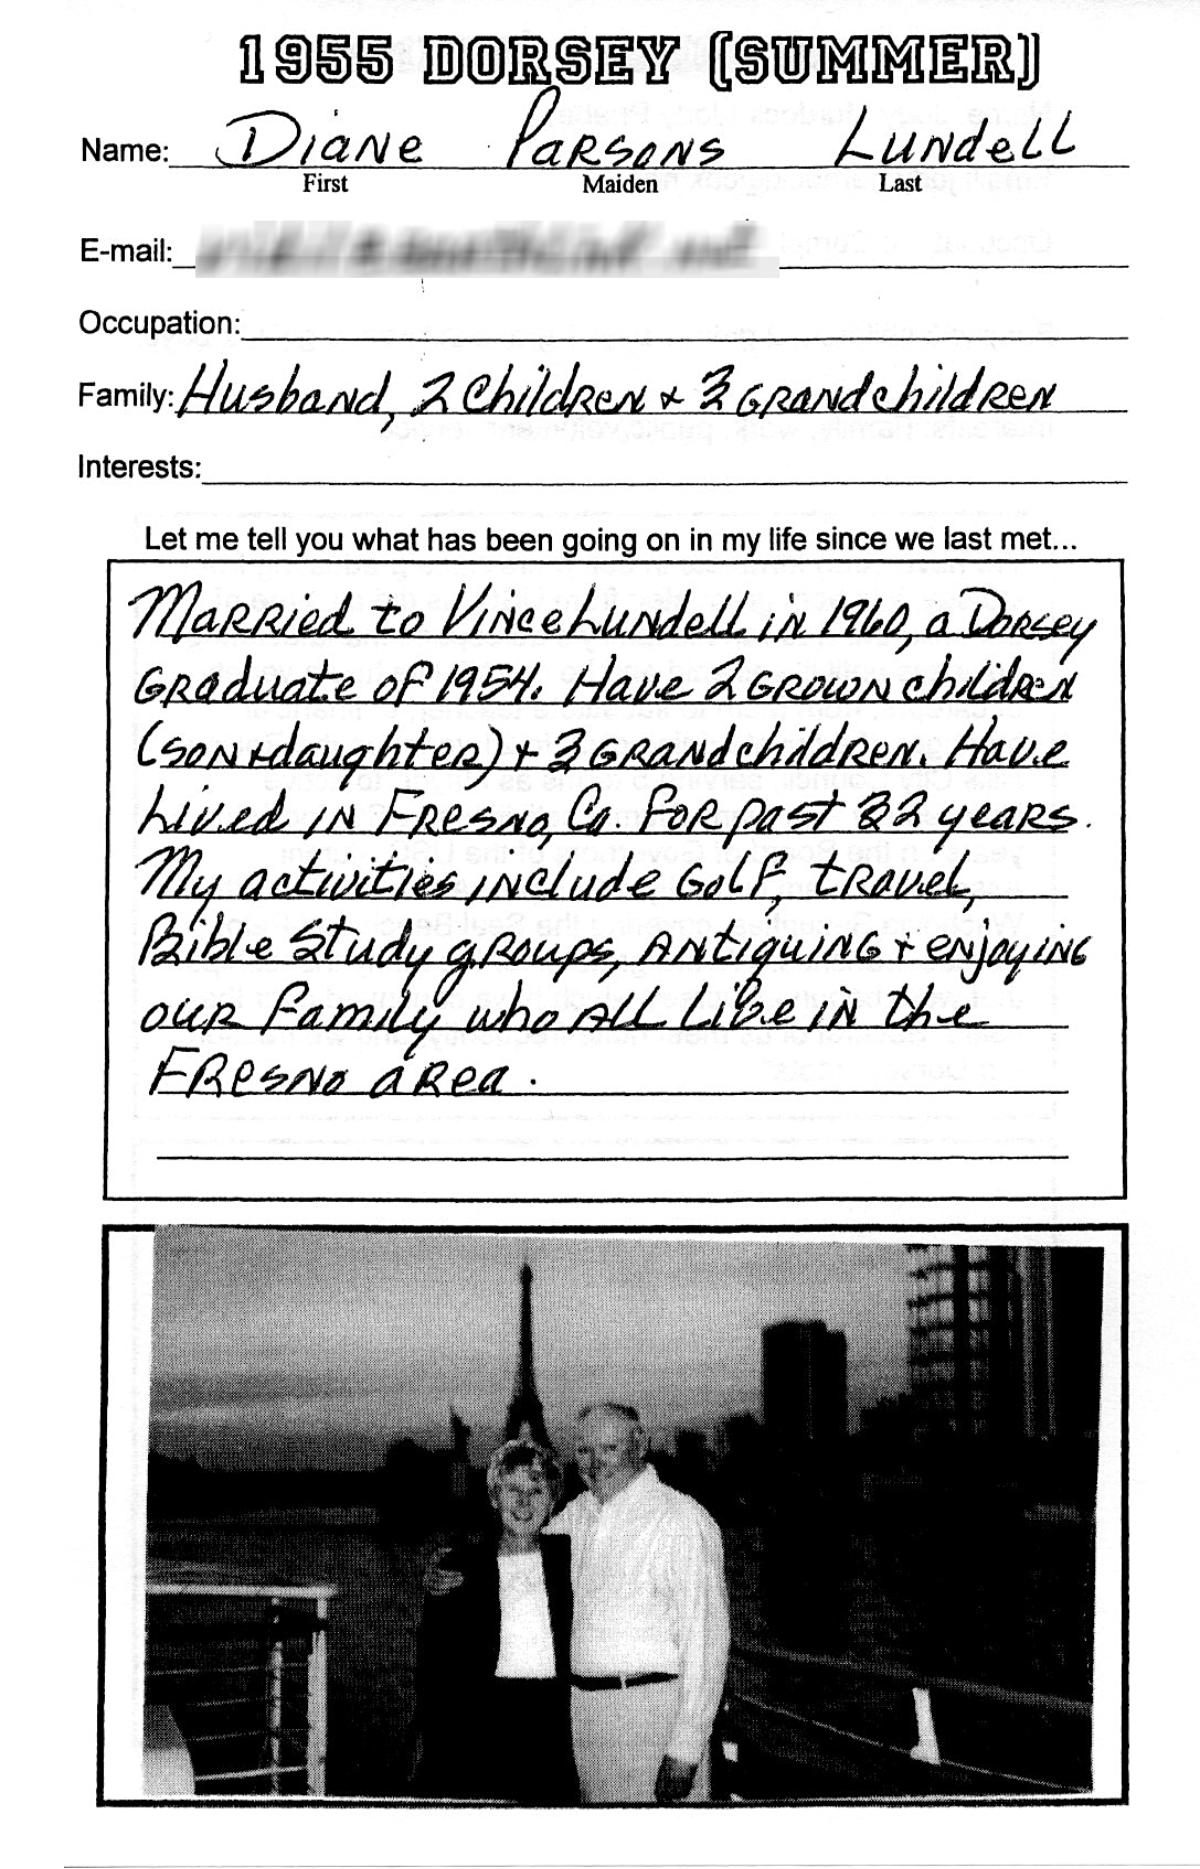 1955 DORSEY (SUMMER)
Name: Diane Parsons Lundell
First Maiden Last
E-mail:
Occupation:
Family: Husband, 2 Children + 3 Grandchildren
Interests:
Let me tell you what has been going on in my life since we last met...
Married to Vince Lundell in 1960, a Dorsey
Graduate of 1954. Have 2 grown children
(son + daughter) + 3 Grandchildren. Have
Lived in Fresno, Ca. for past 32 years.
My activities include Golf, travel,
Bible Study groups, Antiquing + enjoying
our family who all live in the
Fresno area.